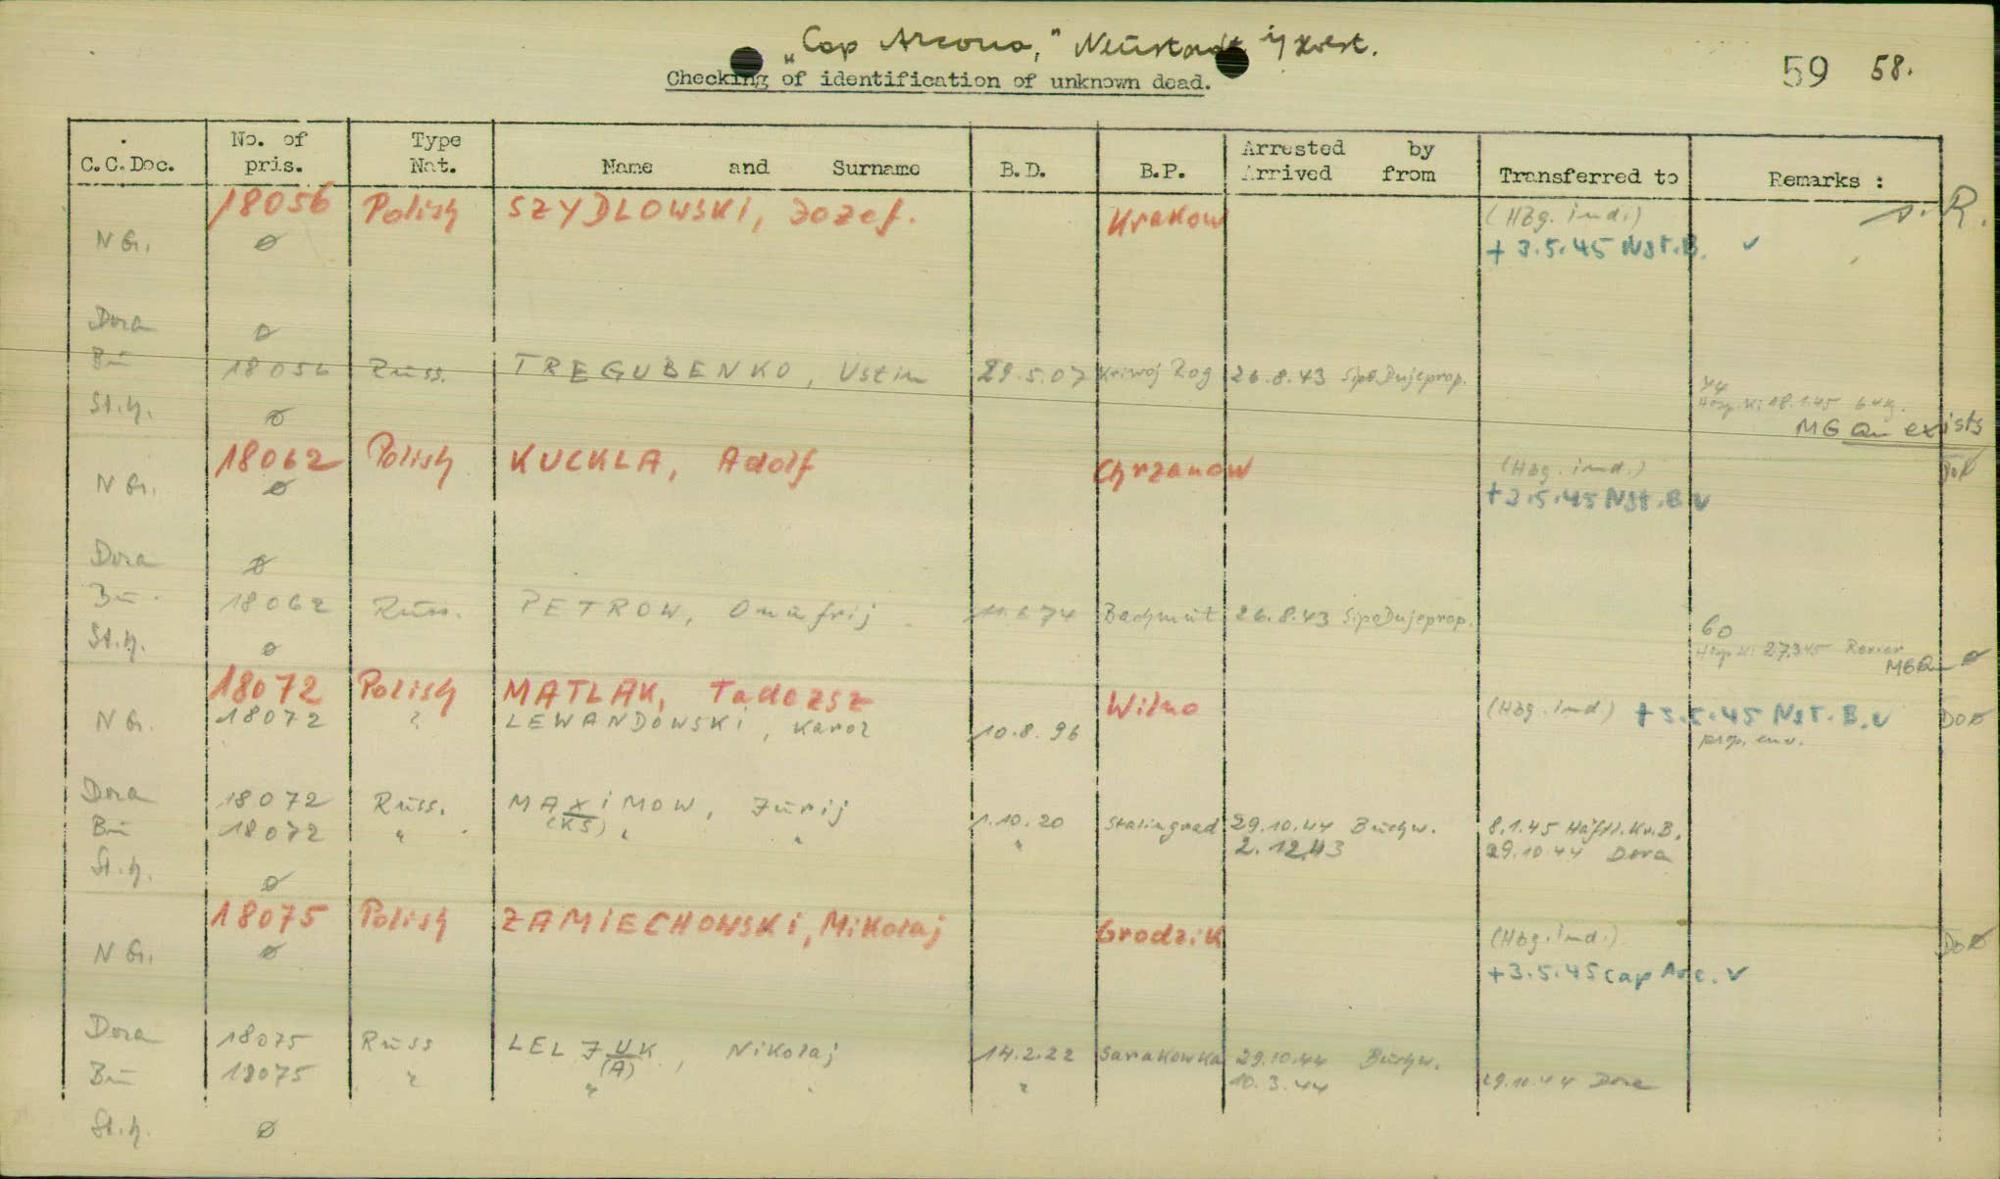 „Cap Arcona," Neustadt i/Holst.
Checking of identification of unknown dead.
59 58.
C.C.Doc. No. of pris. Type Nat. Name and Surname B.D. B.P. Arrested by Arrived from Transferred to Remarks :
18056 Polish SZYDLOWSKI, Jozef. Krakow (Hbg. ind.) s. R.
N G. ø + 3.5.45 Nst.B. ✓
Dora ø
Bu 18056 Russ. TREGUBENKO, Ustin 29.5.07 Kriwoj Rog 26.8.43 Sipo Dnjeprop.
44
18.1.45
St.h. ø MG Qu exists
18062 Polish KUCKLA, Adolf Chrzanow (Hbg. ind.) Do ø
N G. ø + 3.5.45 Nst.B ✓
Dora ø
Bu. 18062 Russ. PETROW, Onufrij 26.8.43 Sipo Dnjeprop.
Bachmut
60
27.3.45 Revier
St.h. ø MG Qu ø
18072 Polish MATLAK, Tadezsz Wilno (Hbg. ind) + 3.5.45 Nst.B. ✓ Do ø
N G. 18072 " LEWANDOWSKI, Karol 10.8.96 pers. env.
Dora 18072 Russ. MAXIMOW, Jurij 1.10.20 Stalingrad 29.10.44 Buchw. 8.1.45 Häftl.Kr.B.
(KS)
Bu 18072 " " " " 2.12.43 29.10.44 Dora
St.h. ø
18075 Polish ZAMIECHOWSKI, Mikolaj Grodzik (Hbg. ind.) Do ø
N G. ø + 3.5.45 Cap Arc. ✓
Dora 18075 Russ LELJUK, Nikolaj 14.2.22 Sarakowka 29.10.44 Buchw.
(A)
Bu 18075 " " " 10.3.44 29.10.44 Dora
St.h. ø